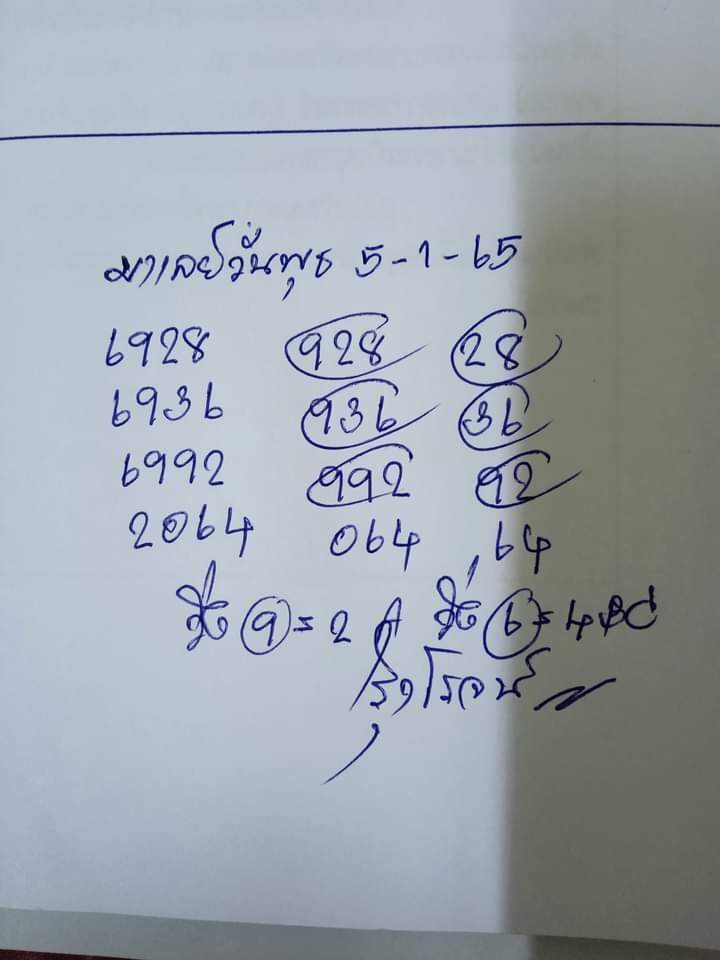 มาเลย์วันพุธ 5-1-65
6928 928 28
6936 936 36
6992 992 92
2064 064 64
วิ่ง 9 = 2 วิ่ง 6 = 4
รุ่งโรจน์